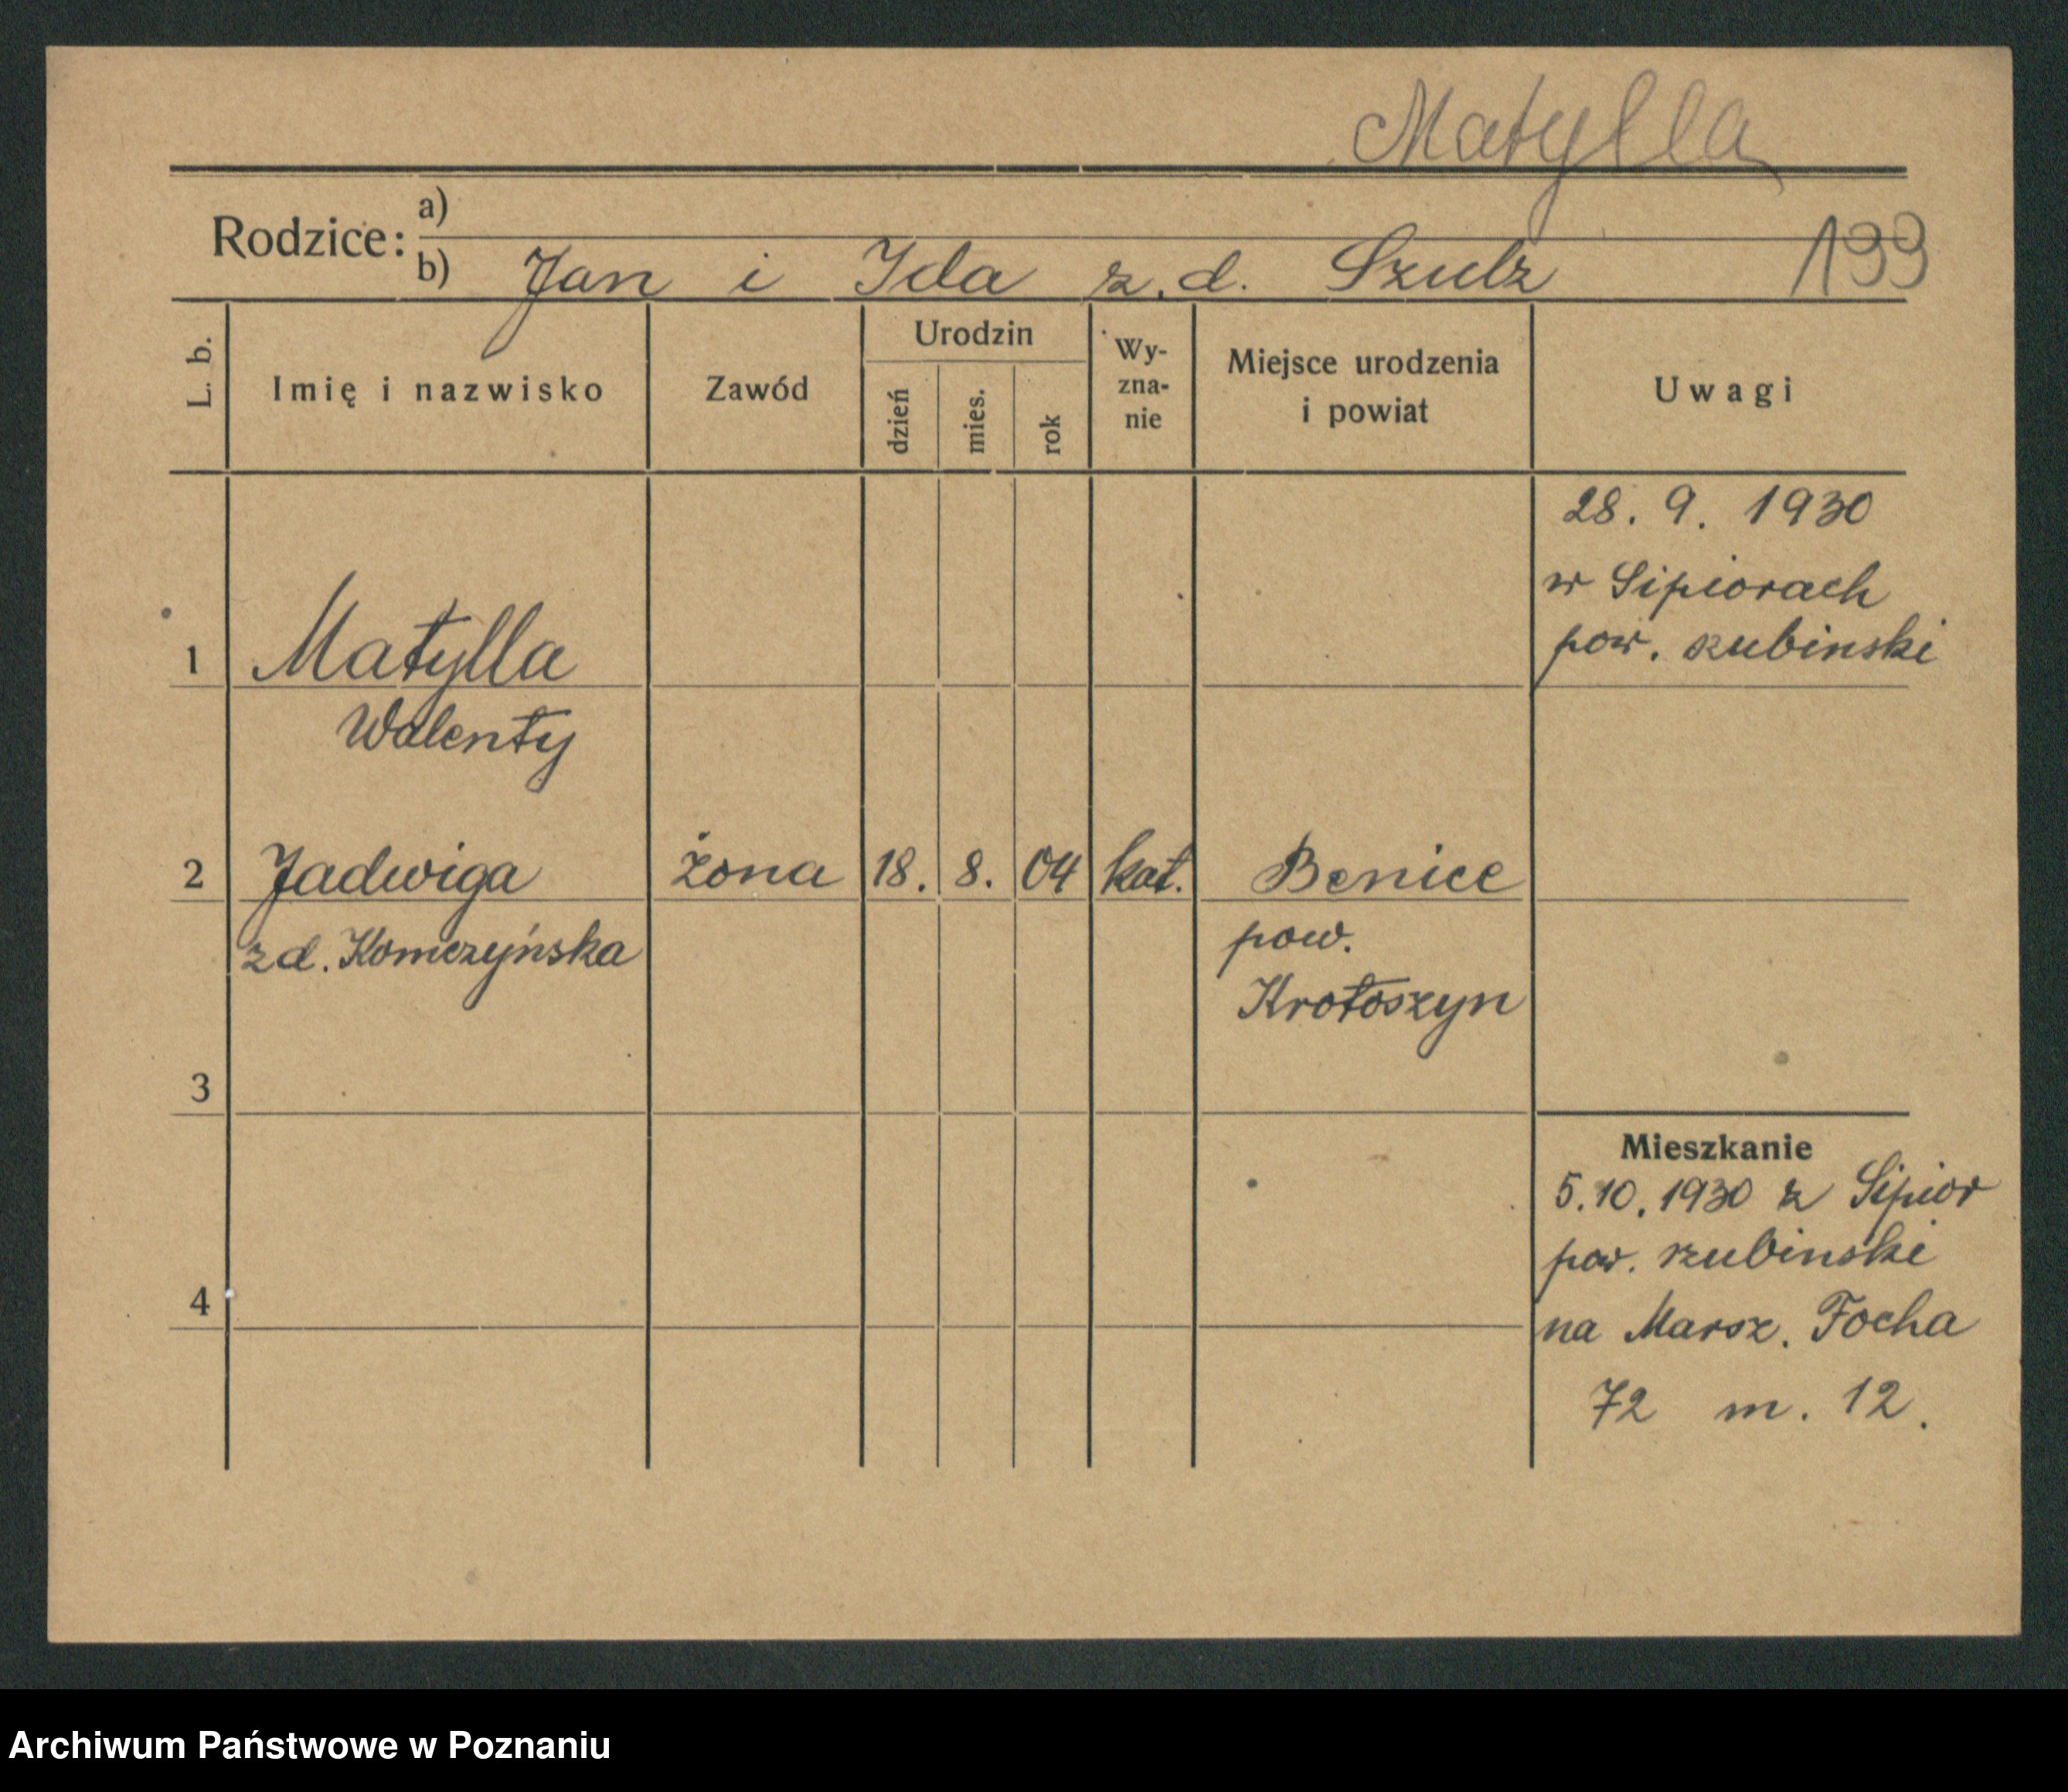 Matylla
Rodzice:
a)
b) Jan i Ida z. d. Szulz
199
L. b.
Imię i nazwisko
Zawód
Urodzin
dzień
mies.
rok
Wy-
zna-
nie
Miejsce urodzenia
i powiat
Uwagi
28. 9. 1930
w Sipiorach
pow. szubinski
1 Matylla
Walenty
2 Jadwiga żona 18. 8. 04 kat. Benice
z d. Komczyńska
pow.
Krotoszyn
3
4
Mieszkanie
5. 10. 1930 z Sipior
pow. szubinski
na Marsz. Focha
72 m. 12.
Archiwum Państwowe w Poznaniu